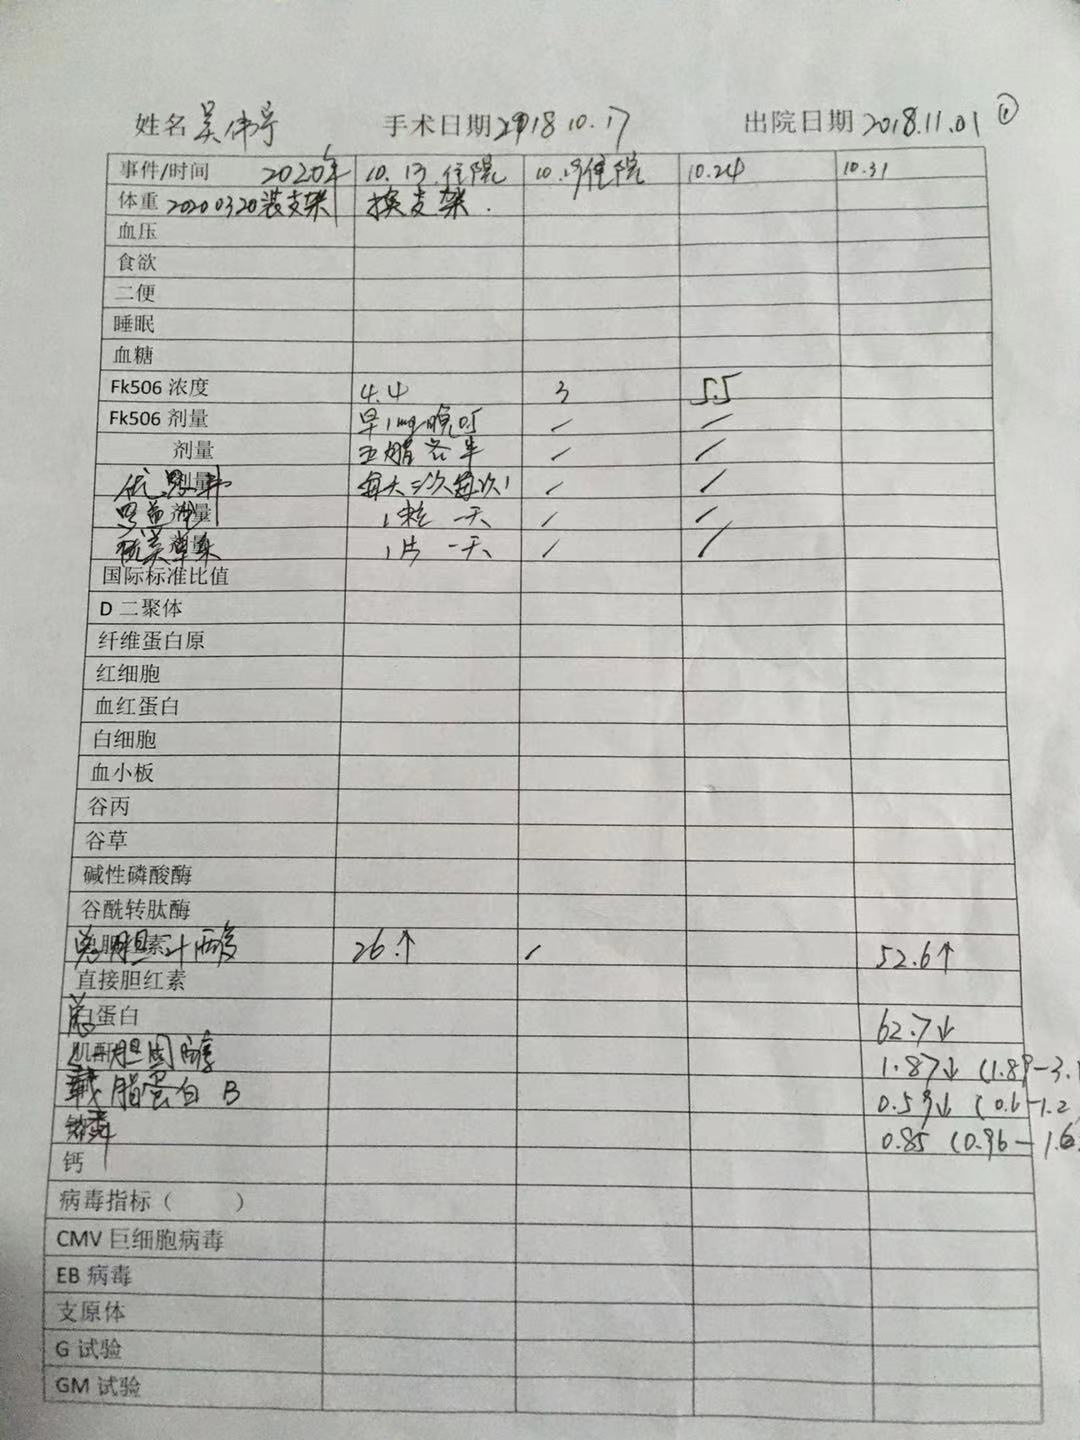 姓名 吴伟宁 手术日期 2018 10.17 出院日期 2018.11.01 ①
事件/时间 2020年 10.13 住院 10.19住院 10.24 10.31
体重 20200320装支架 换支架.
血压
食欲
二便
睡眠
血糖
Fk506 浓度 4.4 3 5.5
Fk506 剂量 早1mg晚0.5 / /
剂量 五脂各半 / /
优思弗 剂量 每天三次每次1 / /
剂量 1粒 一天 / /
1片 一天 / /
国际标准比值
D 二聚体
纤维蛋白原
红细胞
血红蛋白
白细胞
血小板
谷丙
谷草
碱性磷酸酶
谷酰转肽酶
总胆汁酸 26↑ / 52.6↑
直接胆红素
总白蛋白 62.7↓
胆固醇 1.87↓ (1.89-3.
载脂蛋白 B 0.59↓ (0.6-1.2
磷 0.85 (0.96-1.6
钙
病毒指标（ ）
CMV 巨细胞病毒
EB 病毒
支原体
G 试验
GM 试验